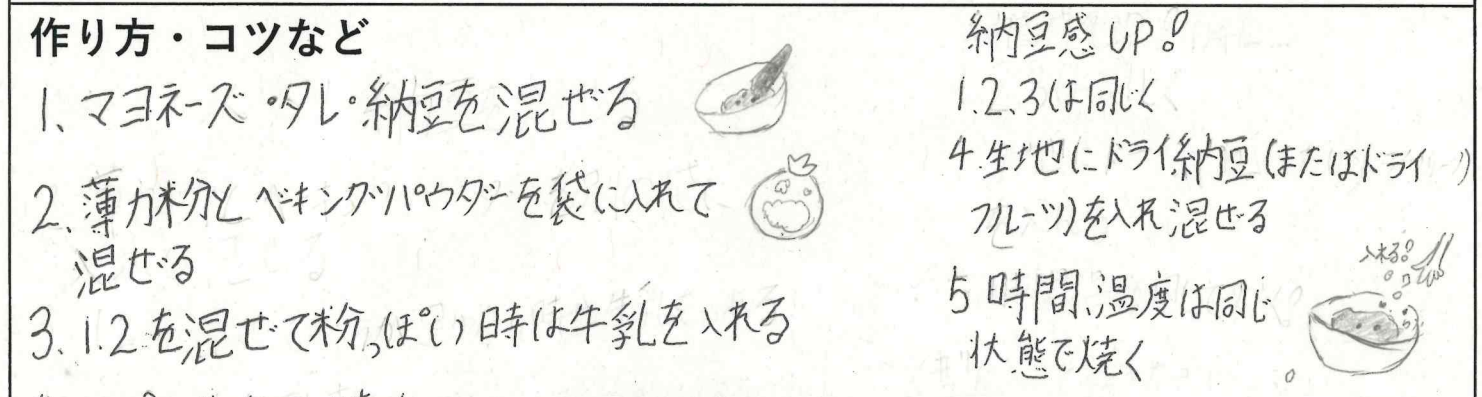 作り方・コツなど
1、マヨネーズ・タレ・納豆を混ぜる
2、薄力粉とベーキングパウダーを袋に入れて
混ぜる
3、1.2を混ぜて粉っぽい時は牛乳を入れる
納豆感UP!
1.2.3は同じく
4.生地にドライ納豆(またはドライ
フルーツ)を入れ混ぜる
入れる!
5 時間、温度は同じ
状態で焼く